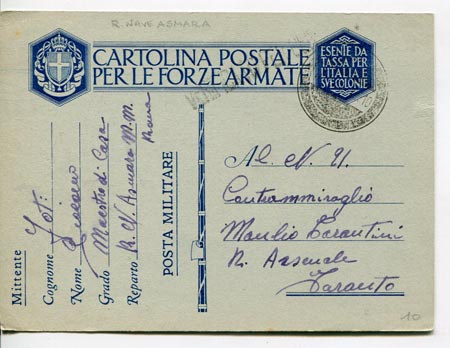 R. NAVE ASMARA
CARTOLINA POSTALE
PER LE FORZE ARMATE
ESENTE DA
TASSA PER
L'ITALIA E
SVE COLONIE
Mittente
Cognome Foti
Nome
Grado Maestro di Casa
Reparto R. N. Asmara M.M.
Roma
POSTA MILITARE
Al N. U.
Contrammiraglio
Manlio Tarantini
R. Arsenale
Taranto
10